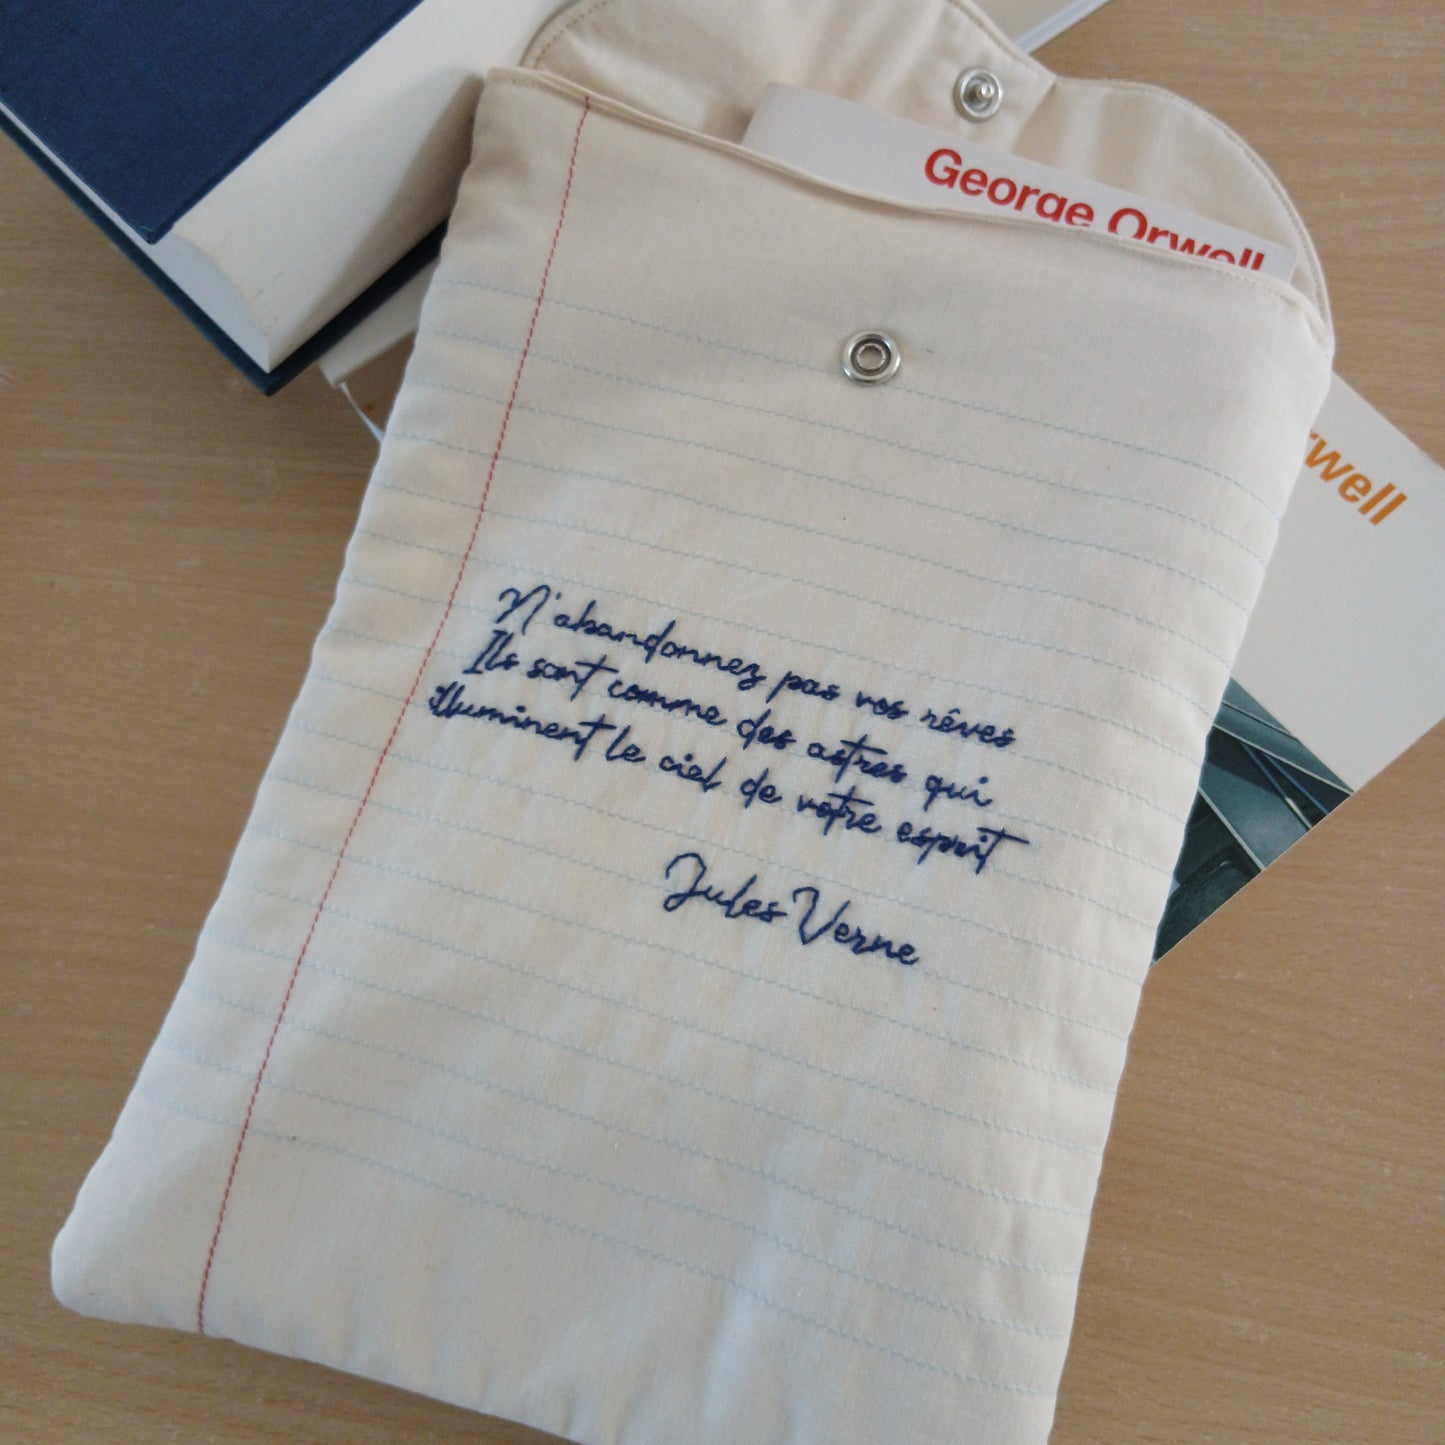 George Orwell
rwell
N'abandonnez pas vos rêves
Ils sont comme des astres qui
illuminent le ciel de votre esprit
Jules Verne